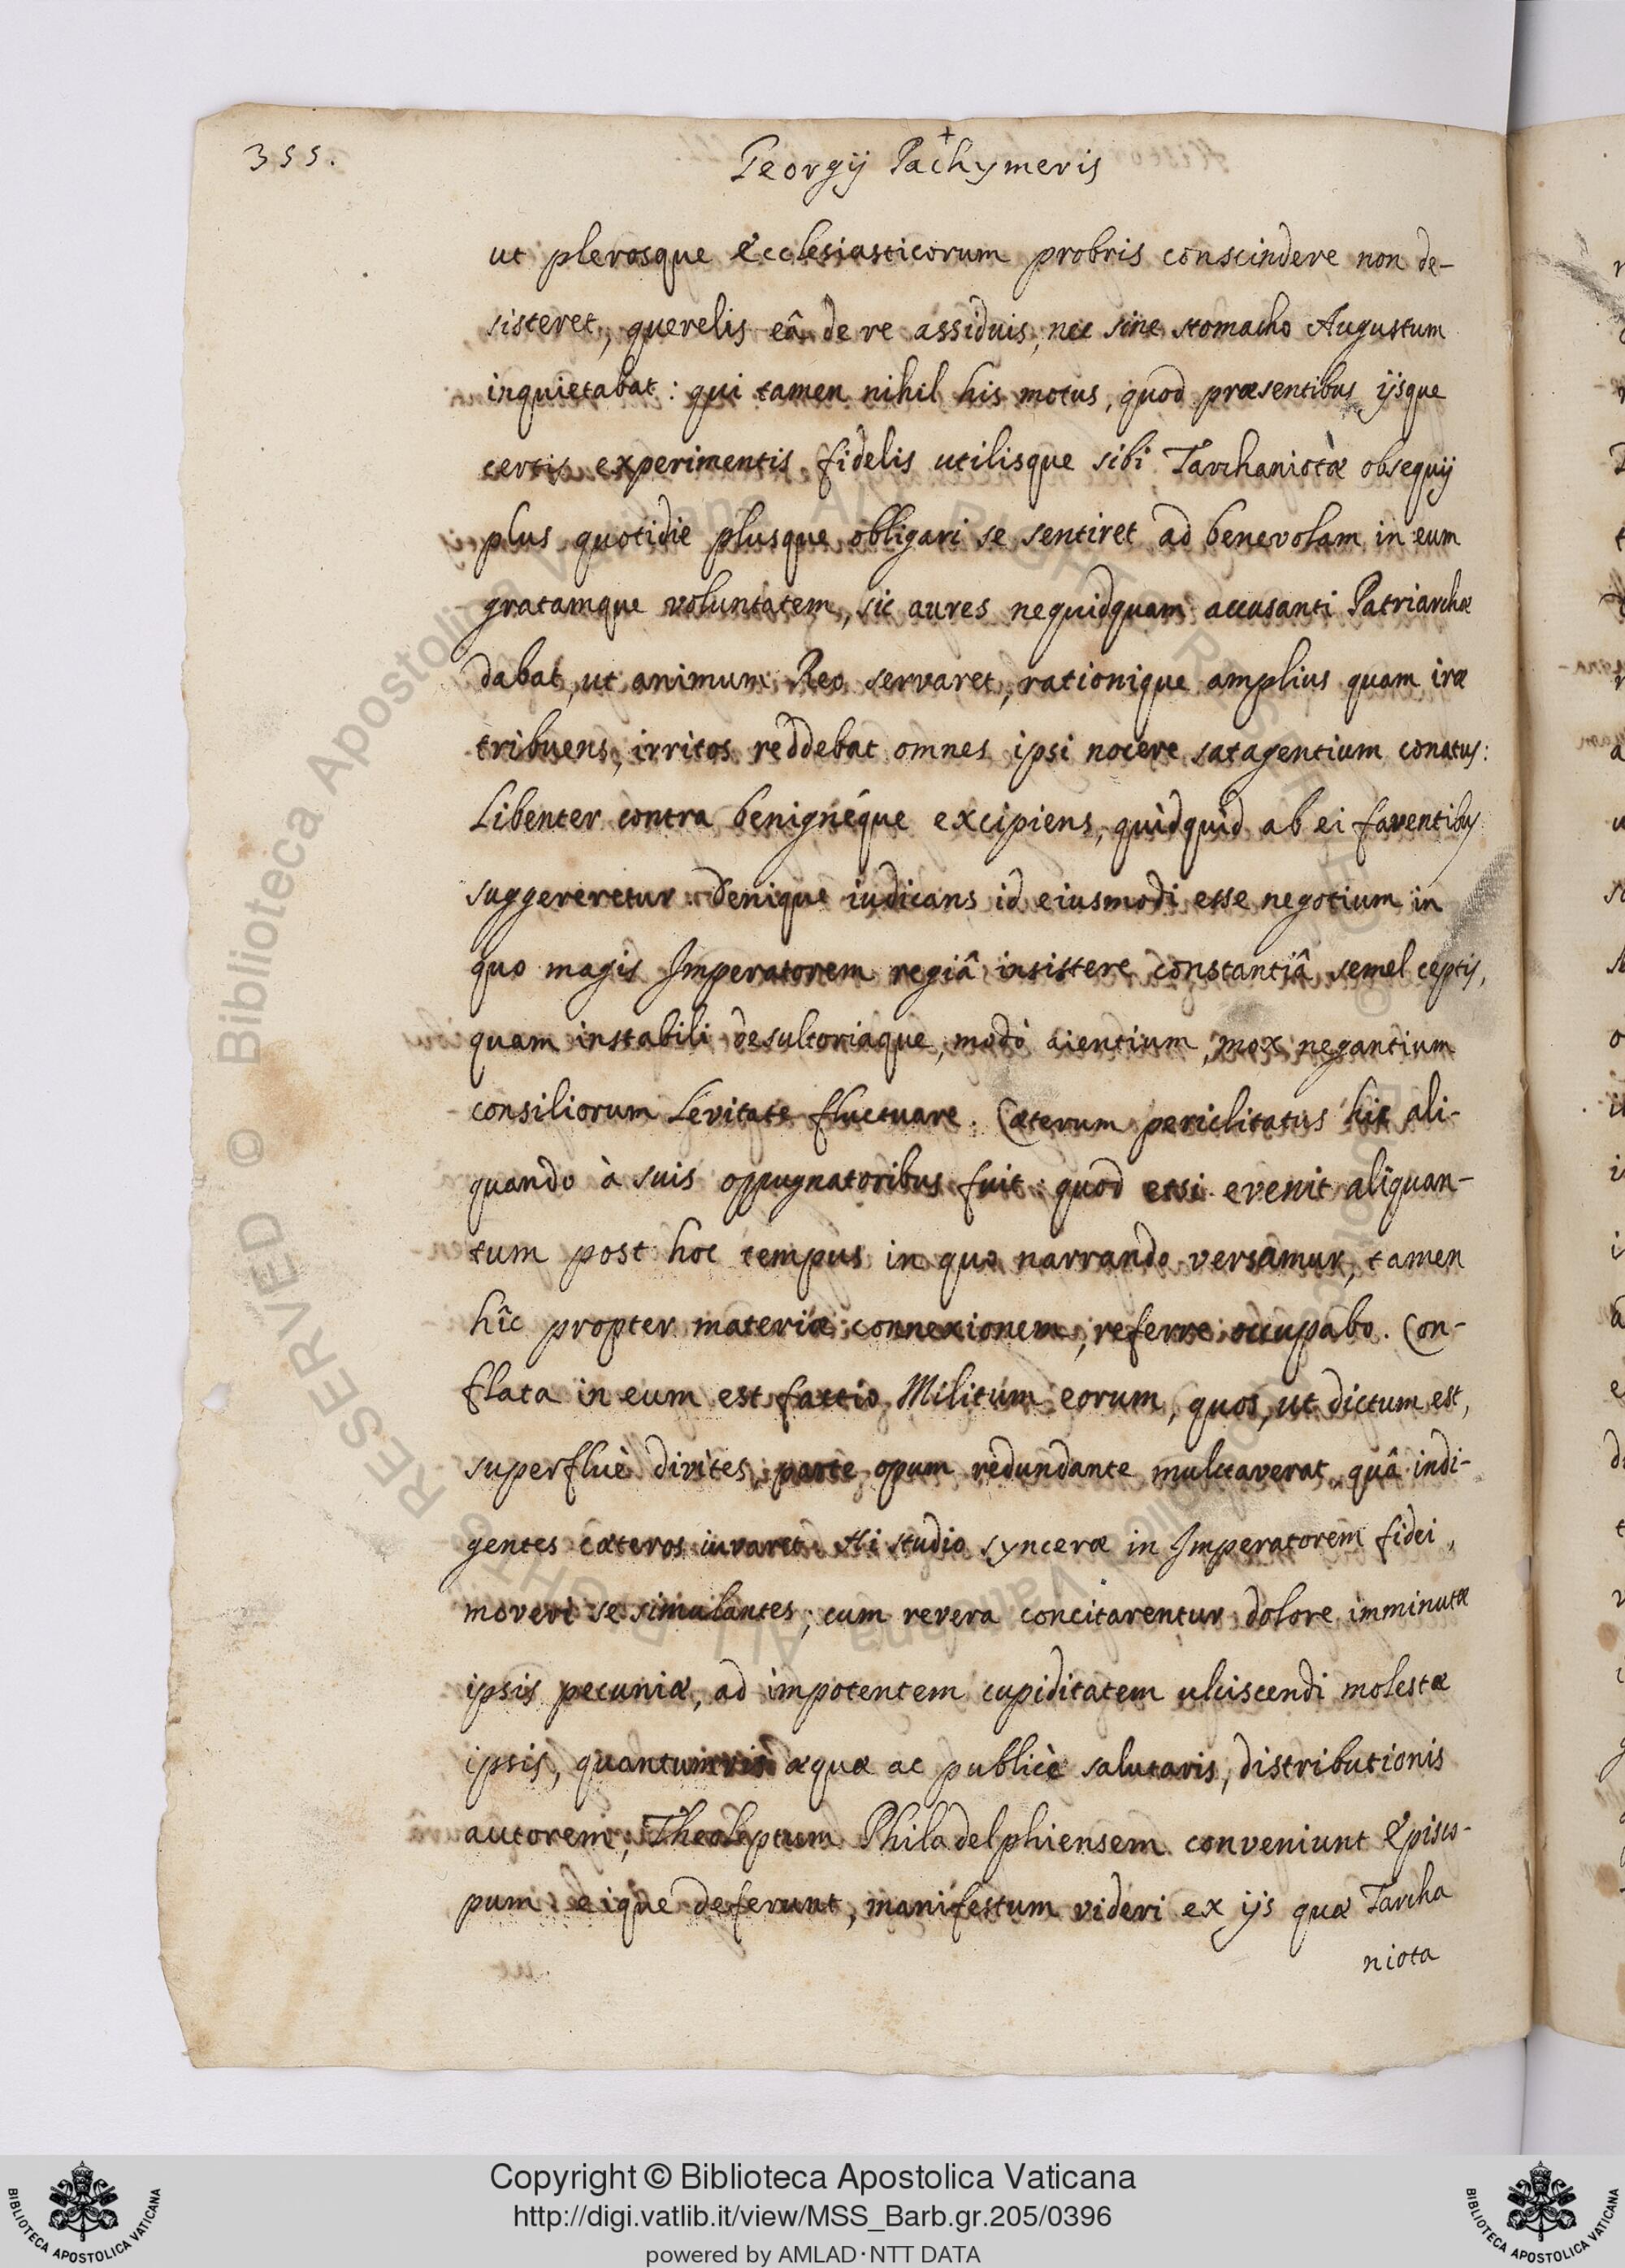 355.
Georgij Pachymeris
ut plerosque Ecclesiasticorum probris conscindere non de-
sisteret, querelis eâ de re assiduis, nec sine stomacho Augustum
inquietabat: qui tamen nihil his motus, quod præsentibus ijsque
certis experimentis fidelis utilisque sibi Tarchaniotæ obsequij
plus quotidie plusque obligari se sentiret ad benevolam in eum
gratamque voluntatem, sic aures nequidquam accusanti Patriarchæ
dabat, ut animum Reo servaret, rationique amplius quam iræ
tribuens, irritos reddebat omnes ipsi nocere satagentium conatus:
Libenter contra benignéque excipiens, quidquid ab ei faventibus
suggereretur. Denique iudicans id eiusmodi esse negotium in
quo magis Imperatorem regiâ insistere constantiâ semel ceptis,
quam instabili desultoriaque, modò aientium, mox negantium
consiliorum Levitate fluctuare. Cæterum periclitatus hic ali-
quando à suis oppugnatoribus fuit: quod etsi evenit aliquan-
tum post hoc tempus in quo narrando versamur, tamen
hîc propter materiæ connexionem, referre occupabo. Con-
flata in eum est factio Militum eorum, quos, ut dictum est,
superfluè divites, parte opum redundante mulctaverat, quâ indi-
gentes cæteros iuvaret. Hi studio synceræ in Imperatorem fidei,
moveri se simulantes, cum revera concitarentur dolore imminutæ
ipsis pecuniæ, ad impotentem cupiditatem ulciscendi molestæ
ipsis, quantumvis æquæ ac publicè salutaris, distributionis
autorem, Theoleptum Philadelphiensem conveniunt Episco-
pum eique deferunt, manifestum videri ex ijs quæ Tarcha
niota
© Biblioteca Apostolica Vaticana ALL RIGHTS RESERVED
Copyright © Biblioteca Apostolica Vaticana
http://digi.vatlib.it/view/MSS_Barb.gr.205/0396
powered by AMLAD·NTT DATA
BIBLIOTECA APOSTOLICA VATICANA
BIBLIOTECA APOSTOLICA VATICANA